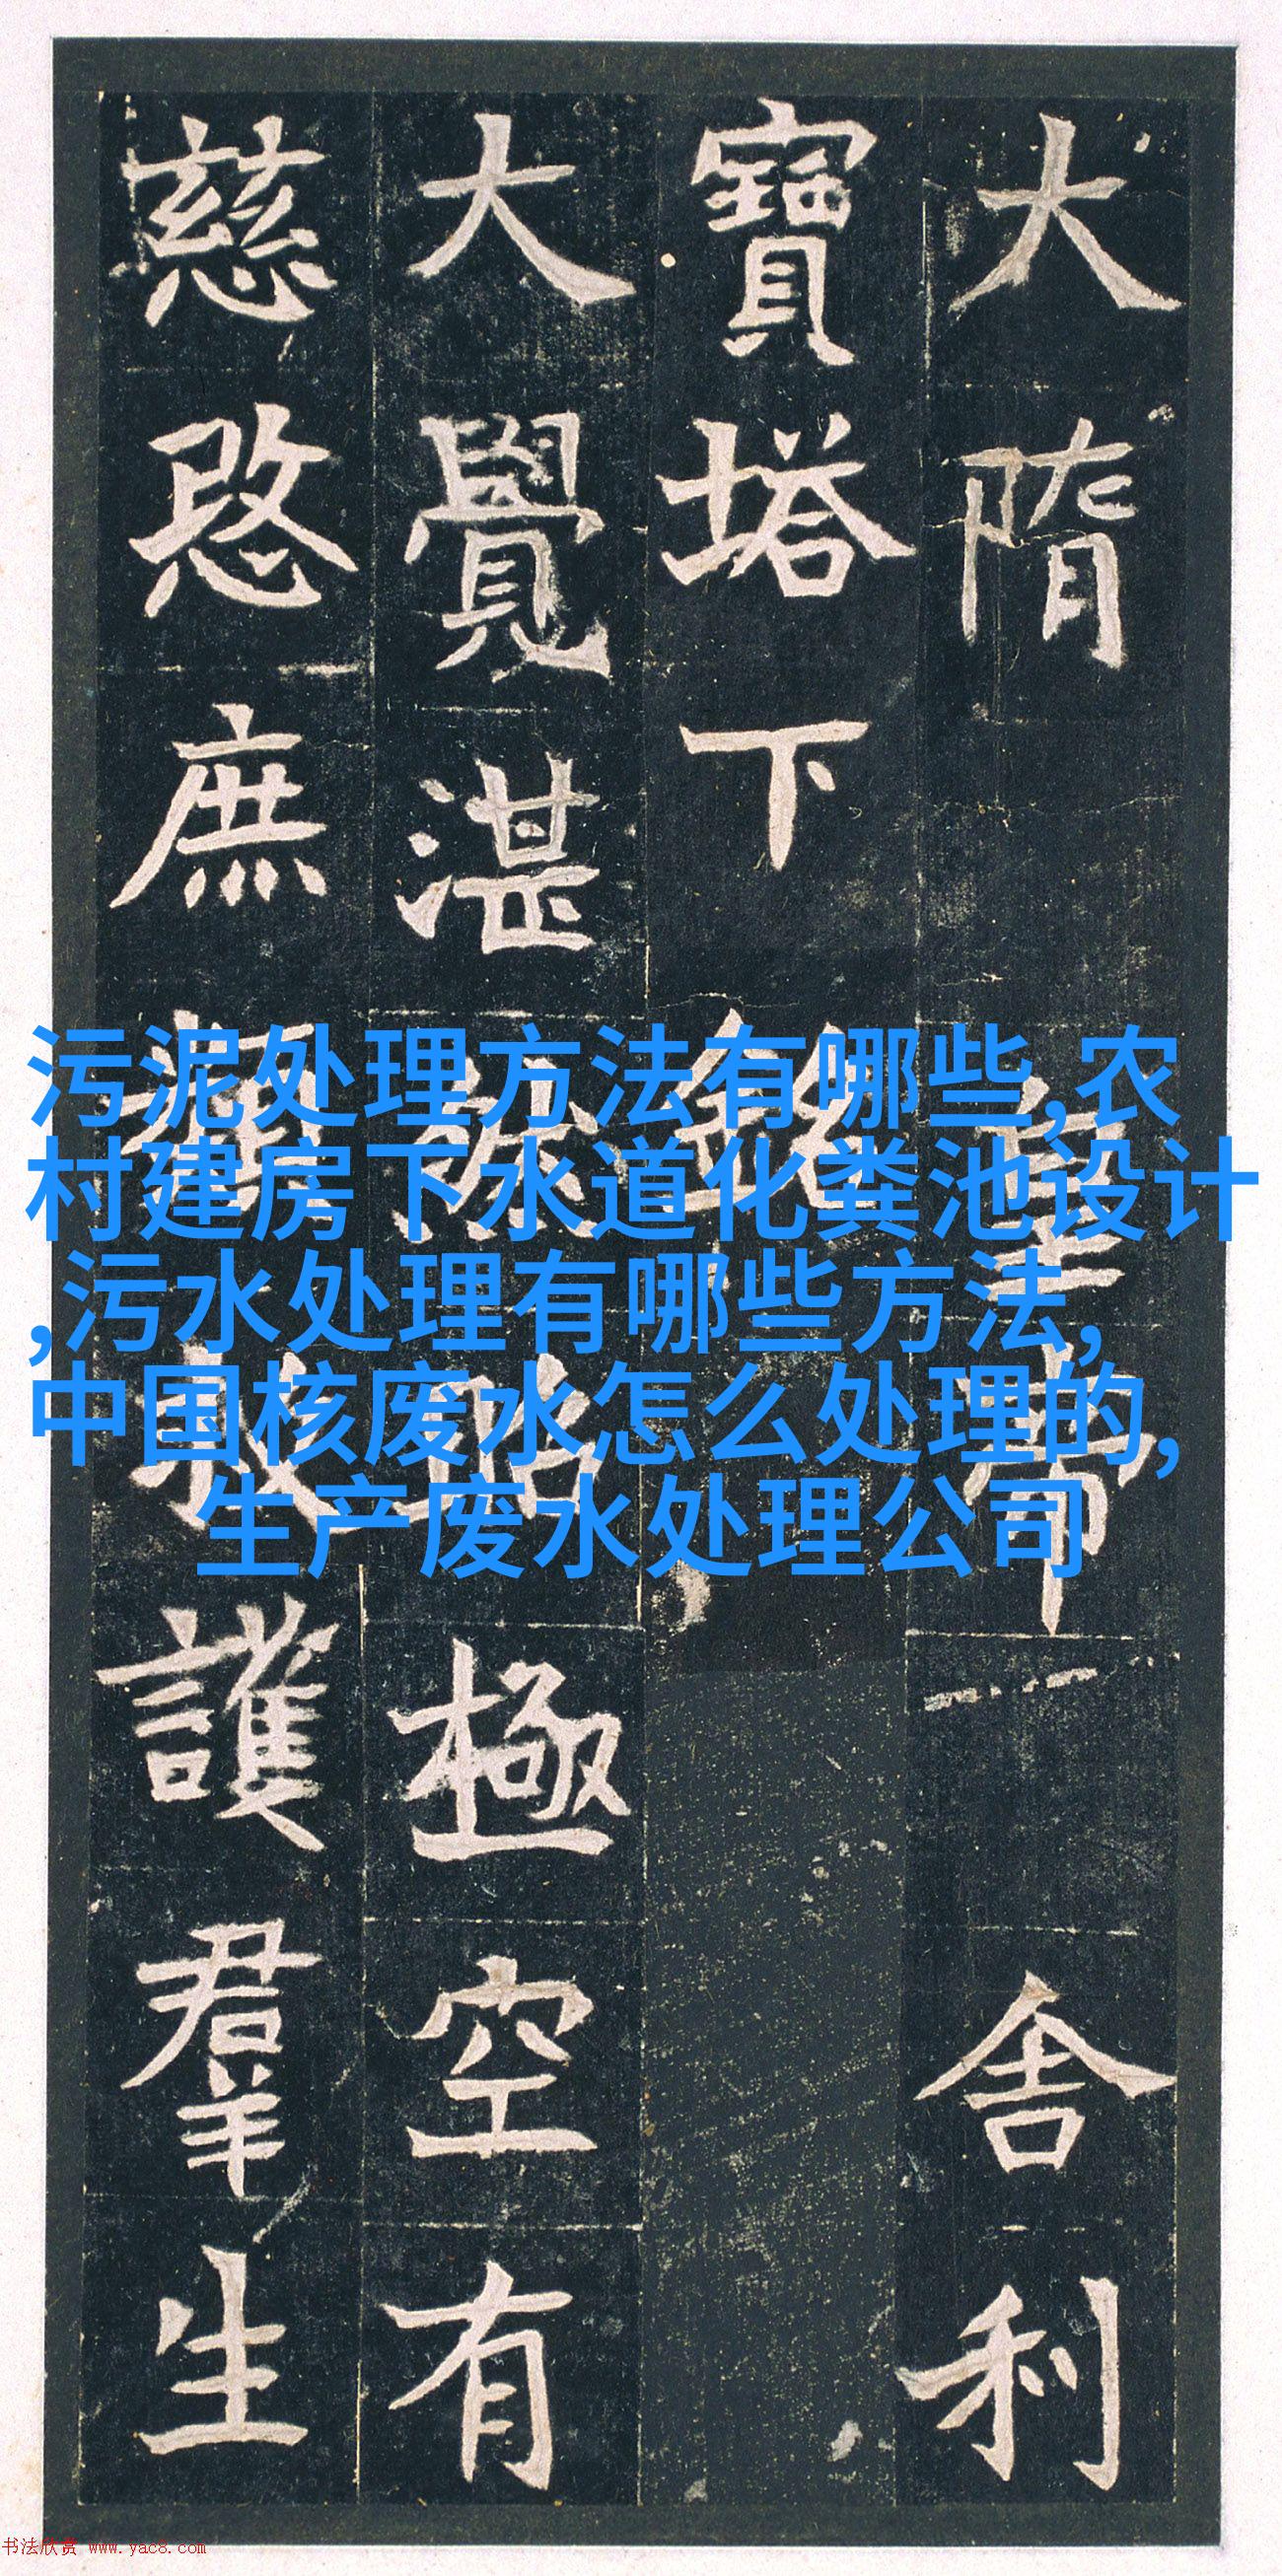 大隋皇帝舍利
寶塔下銘
大覺湛然昭極空有
慈愍庶類救護羣生
污泥处理方法有哪些,农
村建房下水道化粪池设计
,污水处理有哪些方法,
中国核废水怎么处理的,
生产废水处理公司
书法欣赏 www.yac8.com